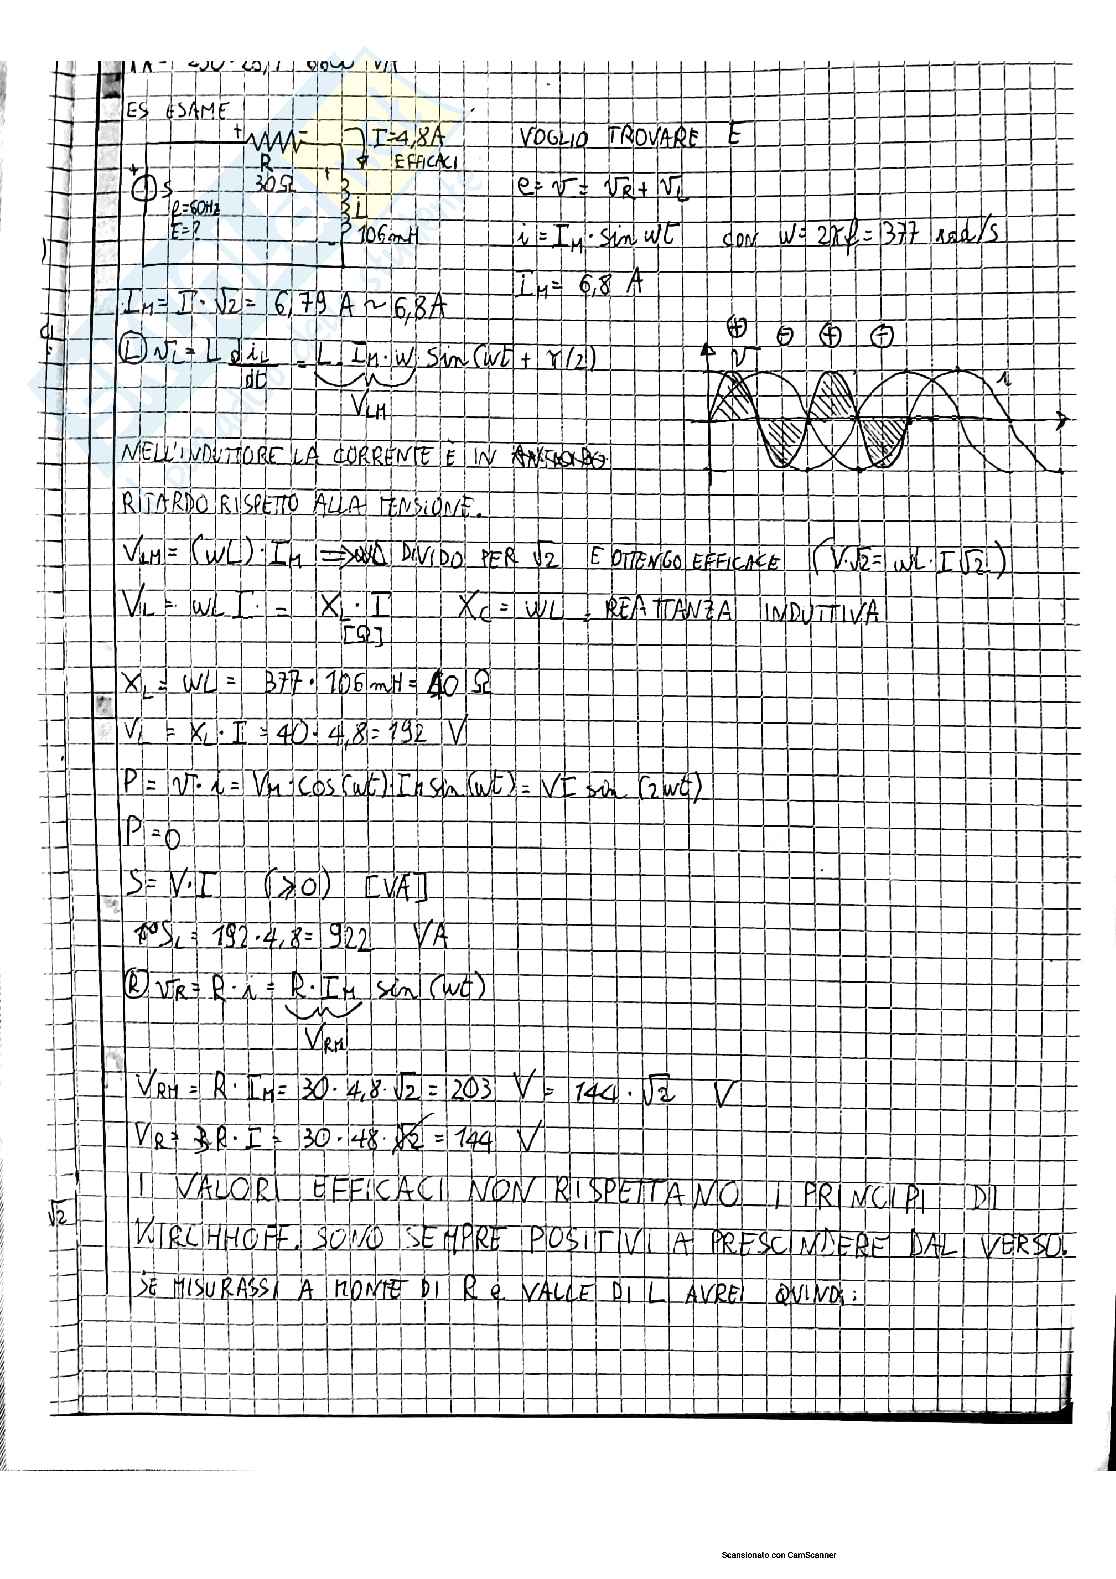 ES ESAME
VOGLIO TROVARE E
+ R 30Ω
I=4,8A EFFICACI
S
f=60Hz
E=?
L
106mH
e=v=vR+vL
i=IM·sin wt CON w=2πf=377 rad/s
IM= 6,8 A
IM=I·√2= 6,79 A ~ 6,8A
Ⓛ vL= L diL/dt = L·IM·w sin(wt + π/2)
VLM
NELL'INDUTTORE LA CORRENTE È IN
RITARDO RISPETTO ALLA TENSIONE.
VLM=(wL)·IM ⇒ DIVIDO PER √2 E OTTENGO EFFICACE (V·√2= wL·I√2)
VL= wL I· = XL·I XC= wL = REATTANZA INDUTTIVA
[Ω]
XL= wL= 377·106mH=40 Ω
VL = XL·I=40·4,8=192 V
P= v·i=VM·cos(wt)·IM sin(wt)=VI sin(2wt)
P=0
S=V·I (≥0) [VA]
SL=192·4,8=922 VA
Ⓡ vR=R·i=R·IM sin(wt)
VRM
VRM = R·IM=30·4,8·√2=203 V= 144·√2 V
VR= R·I= 30·48·√2=144 V
√2
I VALORI EFFICACI NON RISPETTANO I PRINCIPI DI
KIRCHHOFF. SONO SEMPRE POSITIVI A PRESCINDERE DAL VERSO.
SE MISURASSI A MONTE DI R e VALLE DI L AVREI QUINDI:
Scansionato con CamScanner